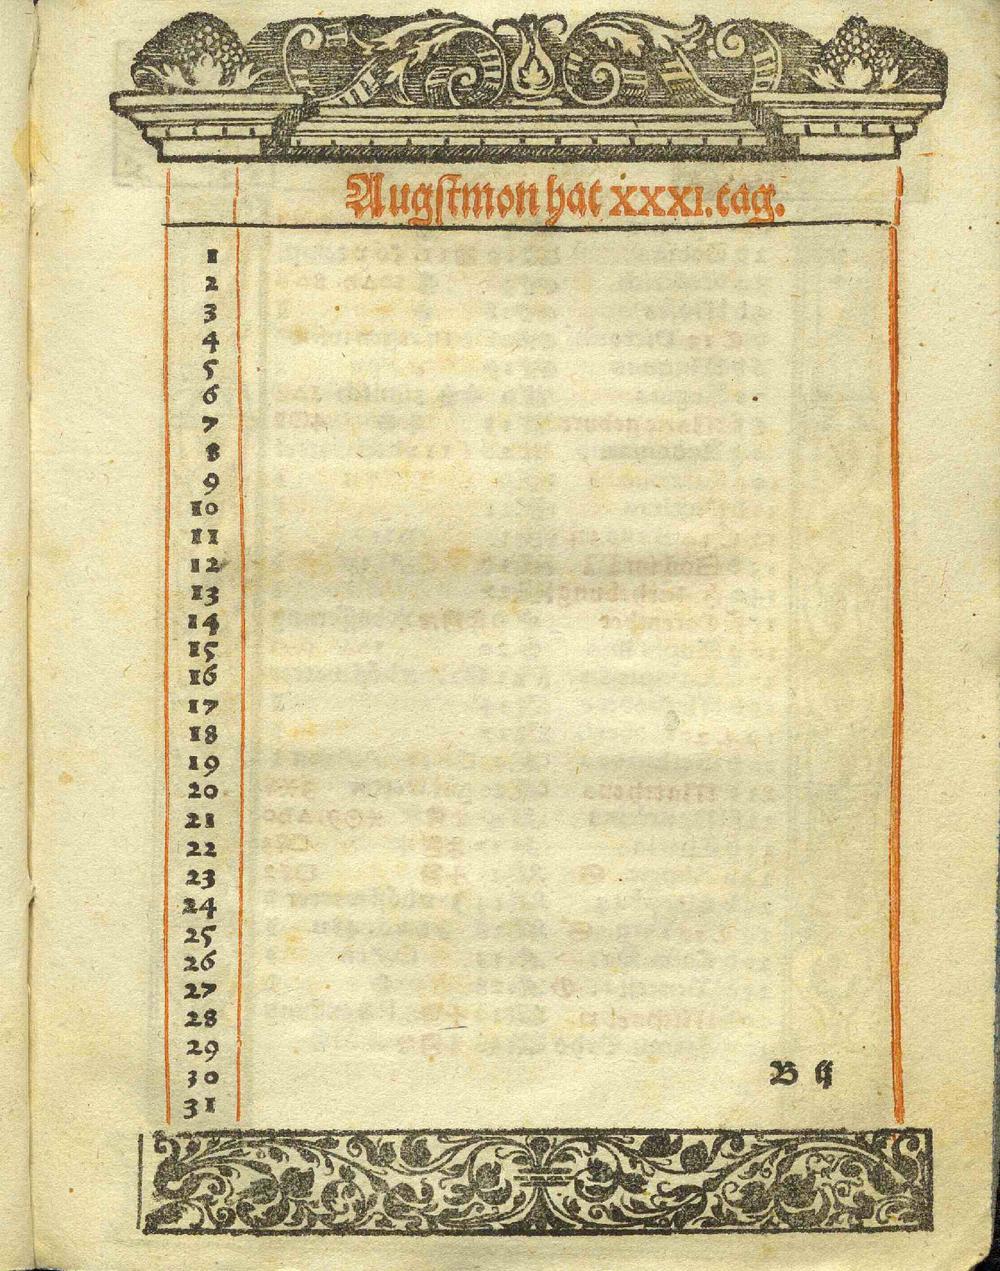 Augstmon hat xxxi. tag.
1
2
3
4
5
6
7
8
9
10
11
12
13
14
15
16
17
18
19
20
21
22
23
24
25
26
27
28
29
30
31
B ij